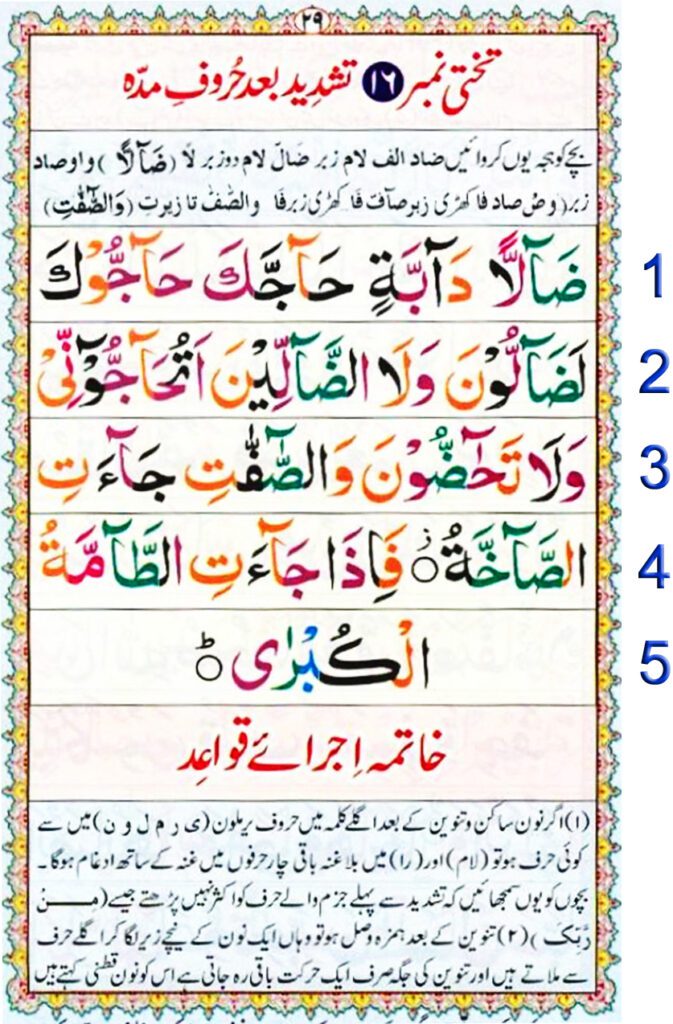 ۲۹
تختی نمبر ۱۶ تشدید بعد حُروفِ مدّہ
بچے کو ہجہ یوں کروائیں ضاد الف لام زبر ضَالَّ لام دو زبر لًا (ضَآلًّا) واو صاد
زبر (وَصْ صاد فا کھڑی زبر صٰٓافّ فَا کھڑی زبر فٰا والصّٰفّٰ تا زیر تِ (وَالصّٰٓفّٰتِ)
ضَآلًّا دَآبَّةٍ حَآجَّكَ حَآجُّوْكَ 1
لَضَآلُّوْنَ وَلَا الضَّآلِّيْنَ اَتُحَآجُّوْٓنِّيْ 2
وَلَا تَحٰٓضُّوْنَ وَالصّٰٓفّٰتِ جَآءَتِ 3
الصَّآخَّةُ ۝ز فَاِذَا جَآءَتِ الطَّآمَّةُ 4
الْكُبْرٰى ۝ط 5
خاتمہ اِجرائے قواعِد
(۱) اگر نون ساکن و تنوین کے بعد اگلے کلمہ میں حروف یرملون (ی ر م ل و ن) میں سے
کوئی حرف ہو تو (لام) اور (را) میں بلا غنہ باقی چار حرفوں میں غنہ کے ساتھ ادغام ہوگا۔
بچوں کو یوں سمجھائیں کہ تشدید سے پہلے جزم والے حرف کو اکثر نہیں پڑھتے جیسے (مِنْ
رَّبِّكَ) (۲) تنوین کے بعد ہمزہ وصل ہو تو وہاں ایک نون کے نیچے زیر لگا کر اگلے حرف
سے ملاتے ہیں اور تنوین کی جگہ صرف ایک حرکت باقی رہ جاتی ہے اس کو نون قطنی کہتے ہیں